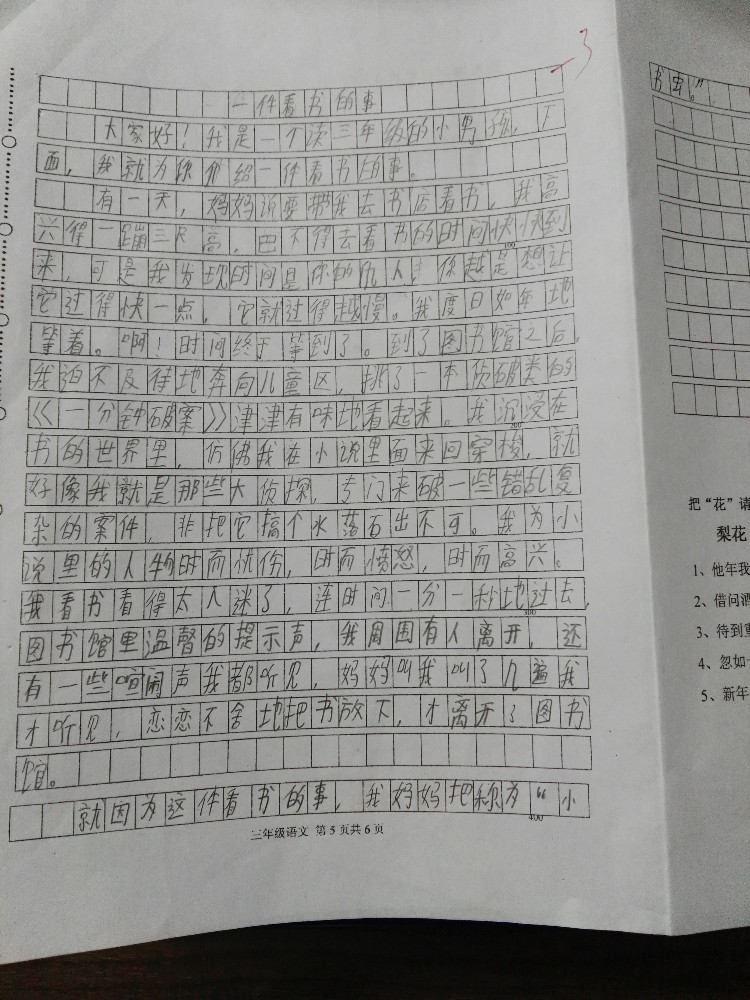 -3
一件看书的事
大家好！我是一个读三年级的小男孩，下
面，我就为你们介绍一件看书的事。
有一天，妈妈说要带我去书店看书，我高
兴得一蹦三尺高，巴不得去看书的时间快快到
100
来，可是我发现时间是你的仇人，你越是想让
它过得快一点，它就过得越慢。我度日如年地
等着。啊！时间终于等到了。到了图书馆之后，
我迫不及待地奔向儿童区，挑了一本侦破类的
《一分钟破案》津津有味地看起来。我沉浸在
200
书的世界里，仿佛我在小说里面来回穿梭，就
好像我就是那些大侦探，专门来破一些错乱复
杂的案件，非把它搞个水落石出不可。我为小
说里的人物时而忧伤，时而愤怒，时而高兴。
我看书看得太入迷了，连时间一分一秒地过去，
300
图书馆里温馨的提示声，我周围有人离开，还
有一些喧闹声我都听见，妈妈叫我叫了几遍我
才听见，恋恋不舍地把书放下，才离开了图书
馆。
就因为这件看书的事，我妈妈把称为“小
400
三年级语文 第5页共6页
书虫。”
把“花”请
梨花
1、他年我
2、借问酒
3、待到重
4、忽如一
5、新年